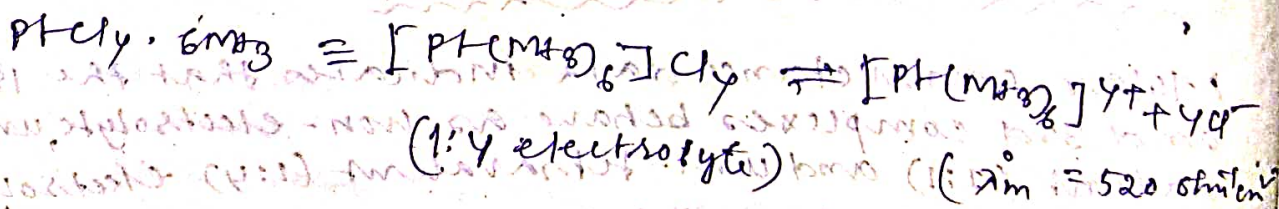 PtCl4. 6NH3 = [Pt(NH3)6]Cl4 ⇌ [Pt(NH3)6]4+ + 4Cl-
(1:4 electrolyte) (λ°m = 520 ohm-1cm2